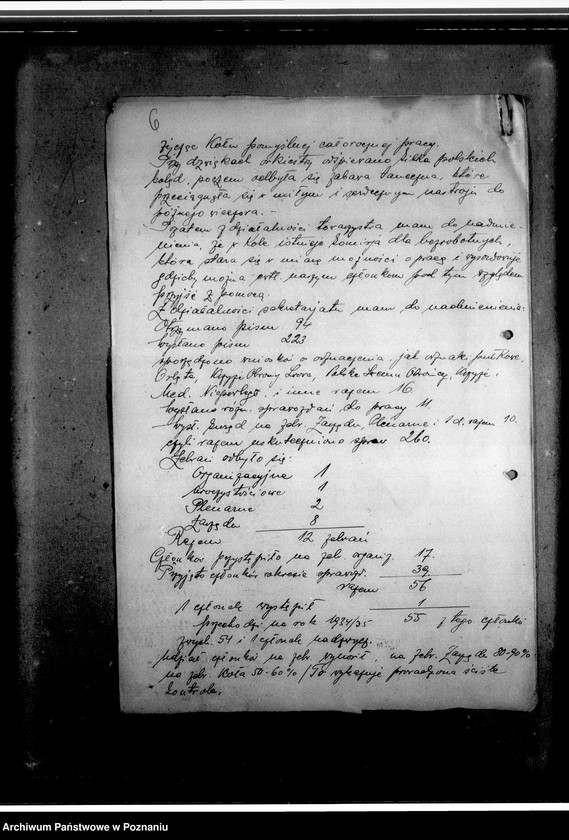 6
życząc Kołu pomyślnej całorocznej pracy.
Przy dźwiękach orkiestry odśpiewano kilka polskich
kolęd, poczem odbyła się zabawa taneczna, która
przeciągnęła się w miłym i serdecznym nastroju do
późnego wieczora. -
Pozatem z działalności towarzystwa mam do nadmie-
nienia, że w kole istnieje komisja dla bezrobotnych,
która stara się w miarę możności o pracę i
gdzieby można naszym członkom pod tym względem
przyjść z pomocą.
Z działalności sekretarjatu mam do nadmienienia:
Otrzymano pism 94
wysłano pism 223
sporządzono wniosków o odznaczenia, jak odznak pułkowe,
Orlęta, Krzyże Obrony Lwowa, Krzyże i
Med. Niepodległ. i inne razem 16.
wysłano różn. sprawozdań do prasy 11.
na zebr. Zarządu, Plenarne i t.d. razem 10.
czyli razem uskuteczniono spraw 260.
Zebrań odbyło się:
Organizacyjne 1
uroczystościowe 1
Plenarne 2
Zarządu 8
Razem 12 zebrań
Członków przystąpiło na zeb. organiz. 17.
Przyjęto członków w okresie sprawozd. 39
razem 56
1 członek wystąpił 1
przechodzi na rok 1934/35 55 z tego członków
zwycz. 54 i 1 członek nadzwycz.
Udział członków na zebr. wynosił, na zebr. Zarządu 80-90%
na zebr. Koła 50-60% / To wykazuje prowadzona ścisła
kontrola.
Archiwum Państwowe w Poznaniu